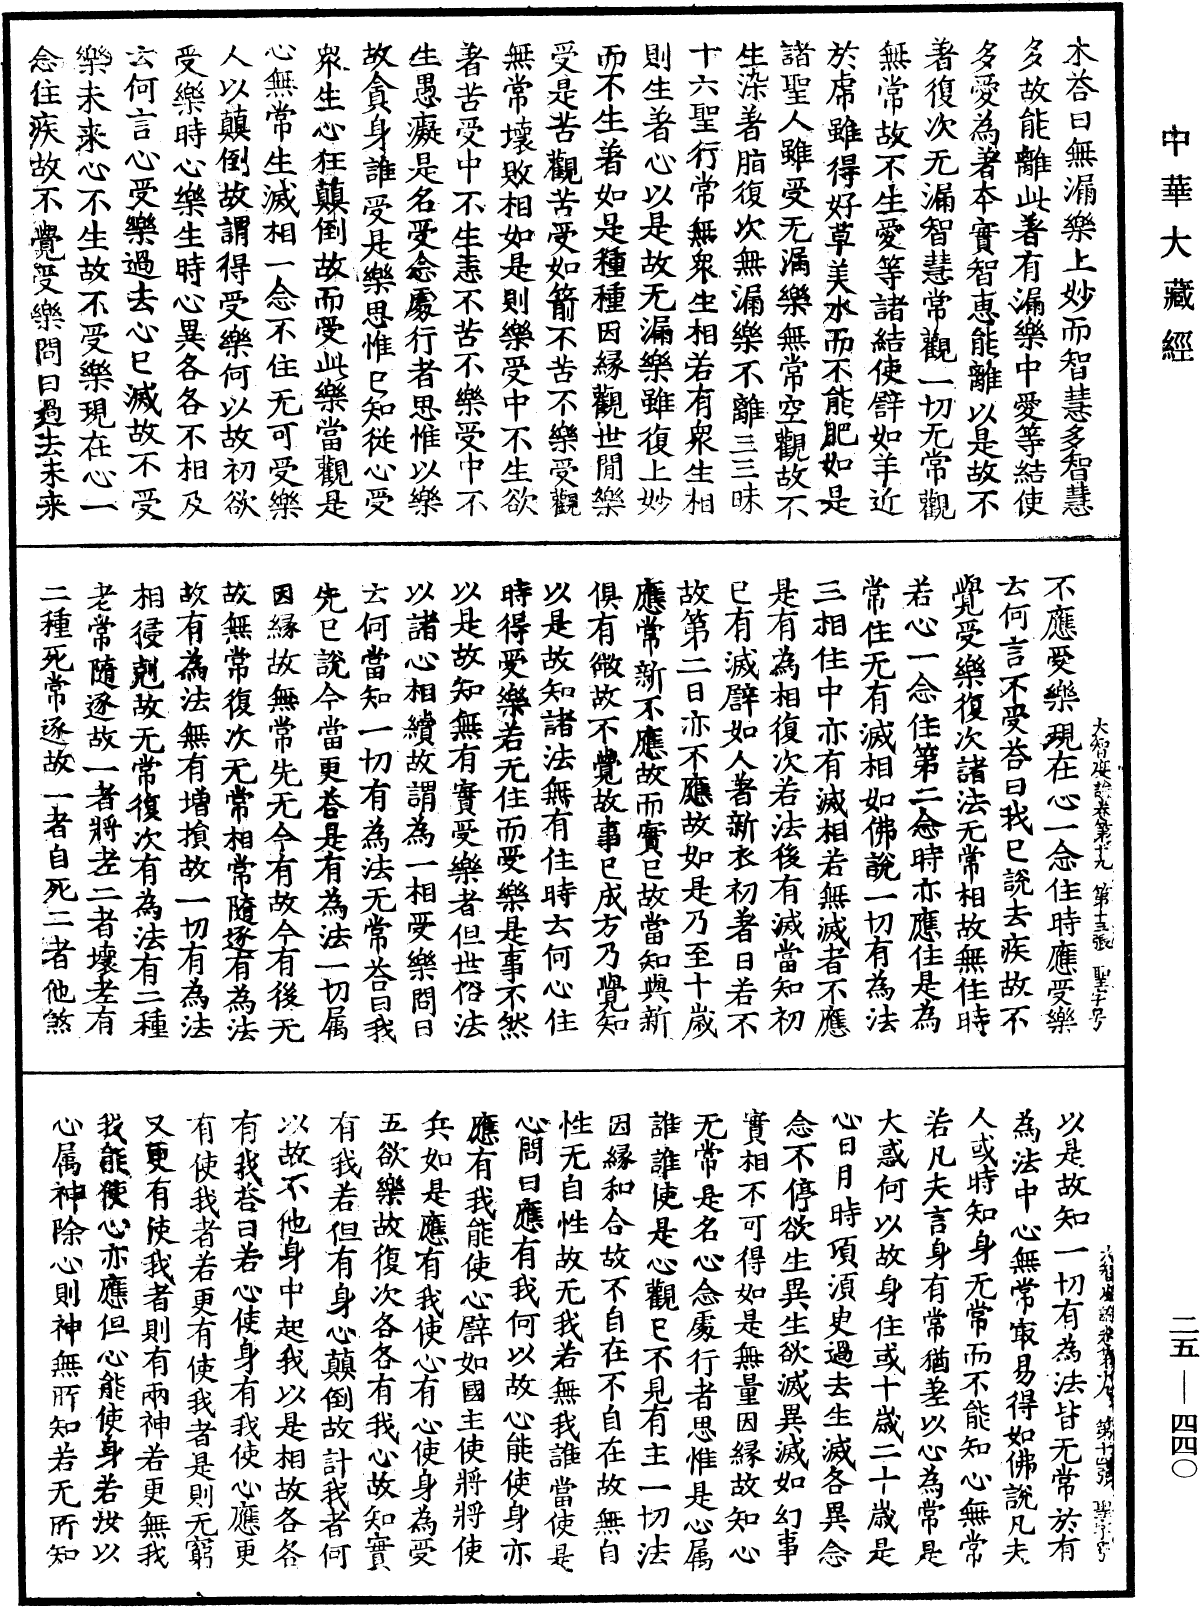 中華大藏經
木荅曰無漏樂上妙而智慧多智慧
多故能離此著有漏樂中愛等結使
多愛為著本實智惠能離以是故不
著復次无漏智慧常觀一切无常觀
無常故不生愛等諸結使譬如羊近
於虎雖得好草美水而不能肥如是
諸聖人雖受无漏樂無常空觀故不
生染著脂復次無漏樂不離三三昧
十六聖行常無衆生相若有衆生相
則生著心以是故无漏樂雖復上妙
而不生著如是種種因緣觀世閒樂
受是苦觀苦受如箭不苦不樂受觀
無常壞敗相如是則樂受中不生欲
著苦受中不生恚不苦不樂受中不
生愚癡是名受念處行者思惟以樂
故貪身誰受是樂思惟已知從心受
衆生心狂顛倒故而受此樂當觀是
心無常生滅相一念不住无可受樂
人以顛倒故謂得受樂何以故初欲
受樂時心樂生時心異各各不相及
云何言心受樂過去心已滅故不受
樂未来心不生故不受樂現在心一
念住疾故不覺受樂問曰過去未来
不應受樂現在心一念住時應受樂
云何言不受荅曰我已說去疾故不
覺受樂復次諸法无常相故無住時
若心一念住第二念時亦應住是為
常住无有滅相如佛說一切有為法
三相住中亦有滅相若無滅者不應
是有為相復次若法後有滅當知初
已有滅譬如人著新衣初著日若不
故第二日亦不應故如是乃至十歲
應常新不應故而實已故當知與新
俱有微故不覺故事已成方乃覺知
以是故知諸法無有住時云何心住
時得受樂若无住而受樂是事不然
以是故知無有實受樂者但世俗法
以諸心相續故謂為一相受樂問曰
云何當知一切有為法无常荅曰我
先已說今當更荅是有為法一切属
因緣故無常先无今有故今有後无
故無常復次无常相常隨逐有為法
故有為法無有增損故一切有為法
相侵剋故无常復次有為法有二種
老常隨逐故一者將老二者壞老有
二種死常逐故一者自死二者他煞
大智度論卷第十九 第十三張 聖字号
以是故知一切有為法皆无常於有
為法中心無常冣易得如佛說凡夫
人或時知身无常而不能知心無常
若凡夫言身有常猶差以心為常是
大惑何以故身住或十歲二十歲是
心日月時項湏史過去生滅各異念
念不停欲生異生欲滅異滅如幻事
實相不可得如是無量因緣故知心
无常是名心念處行者思惟是心属
誰誰使是心觀已不見有主一切法
因緣和合故不自在不自在故無自
性无自性故无我若無我誰當使是
心問曰應有我何以故心能使身亦
應有我能使心譬如國主使將將使
兵如是應有我使心有心使身為受
五欲樂故復次各各有我心故知實
有我若但有身心顛倒故計我者何
以故不他身中起我以是相故各各
有我荅曰若心使身有我使心應更
有使我者若更有使我者是則无窮
又更有使我者則有兩神若更無我
我能使心亦應但心能使身若汝以
心属神除心則神無所知若无所知
二五—四四〇